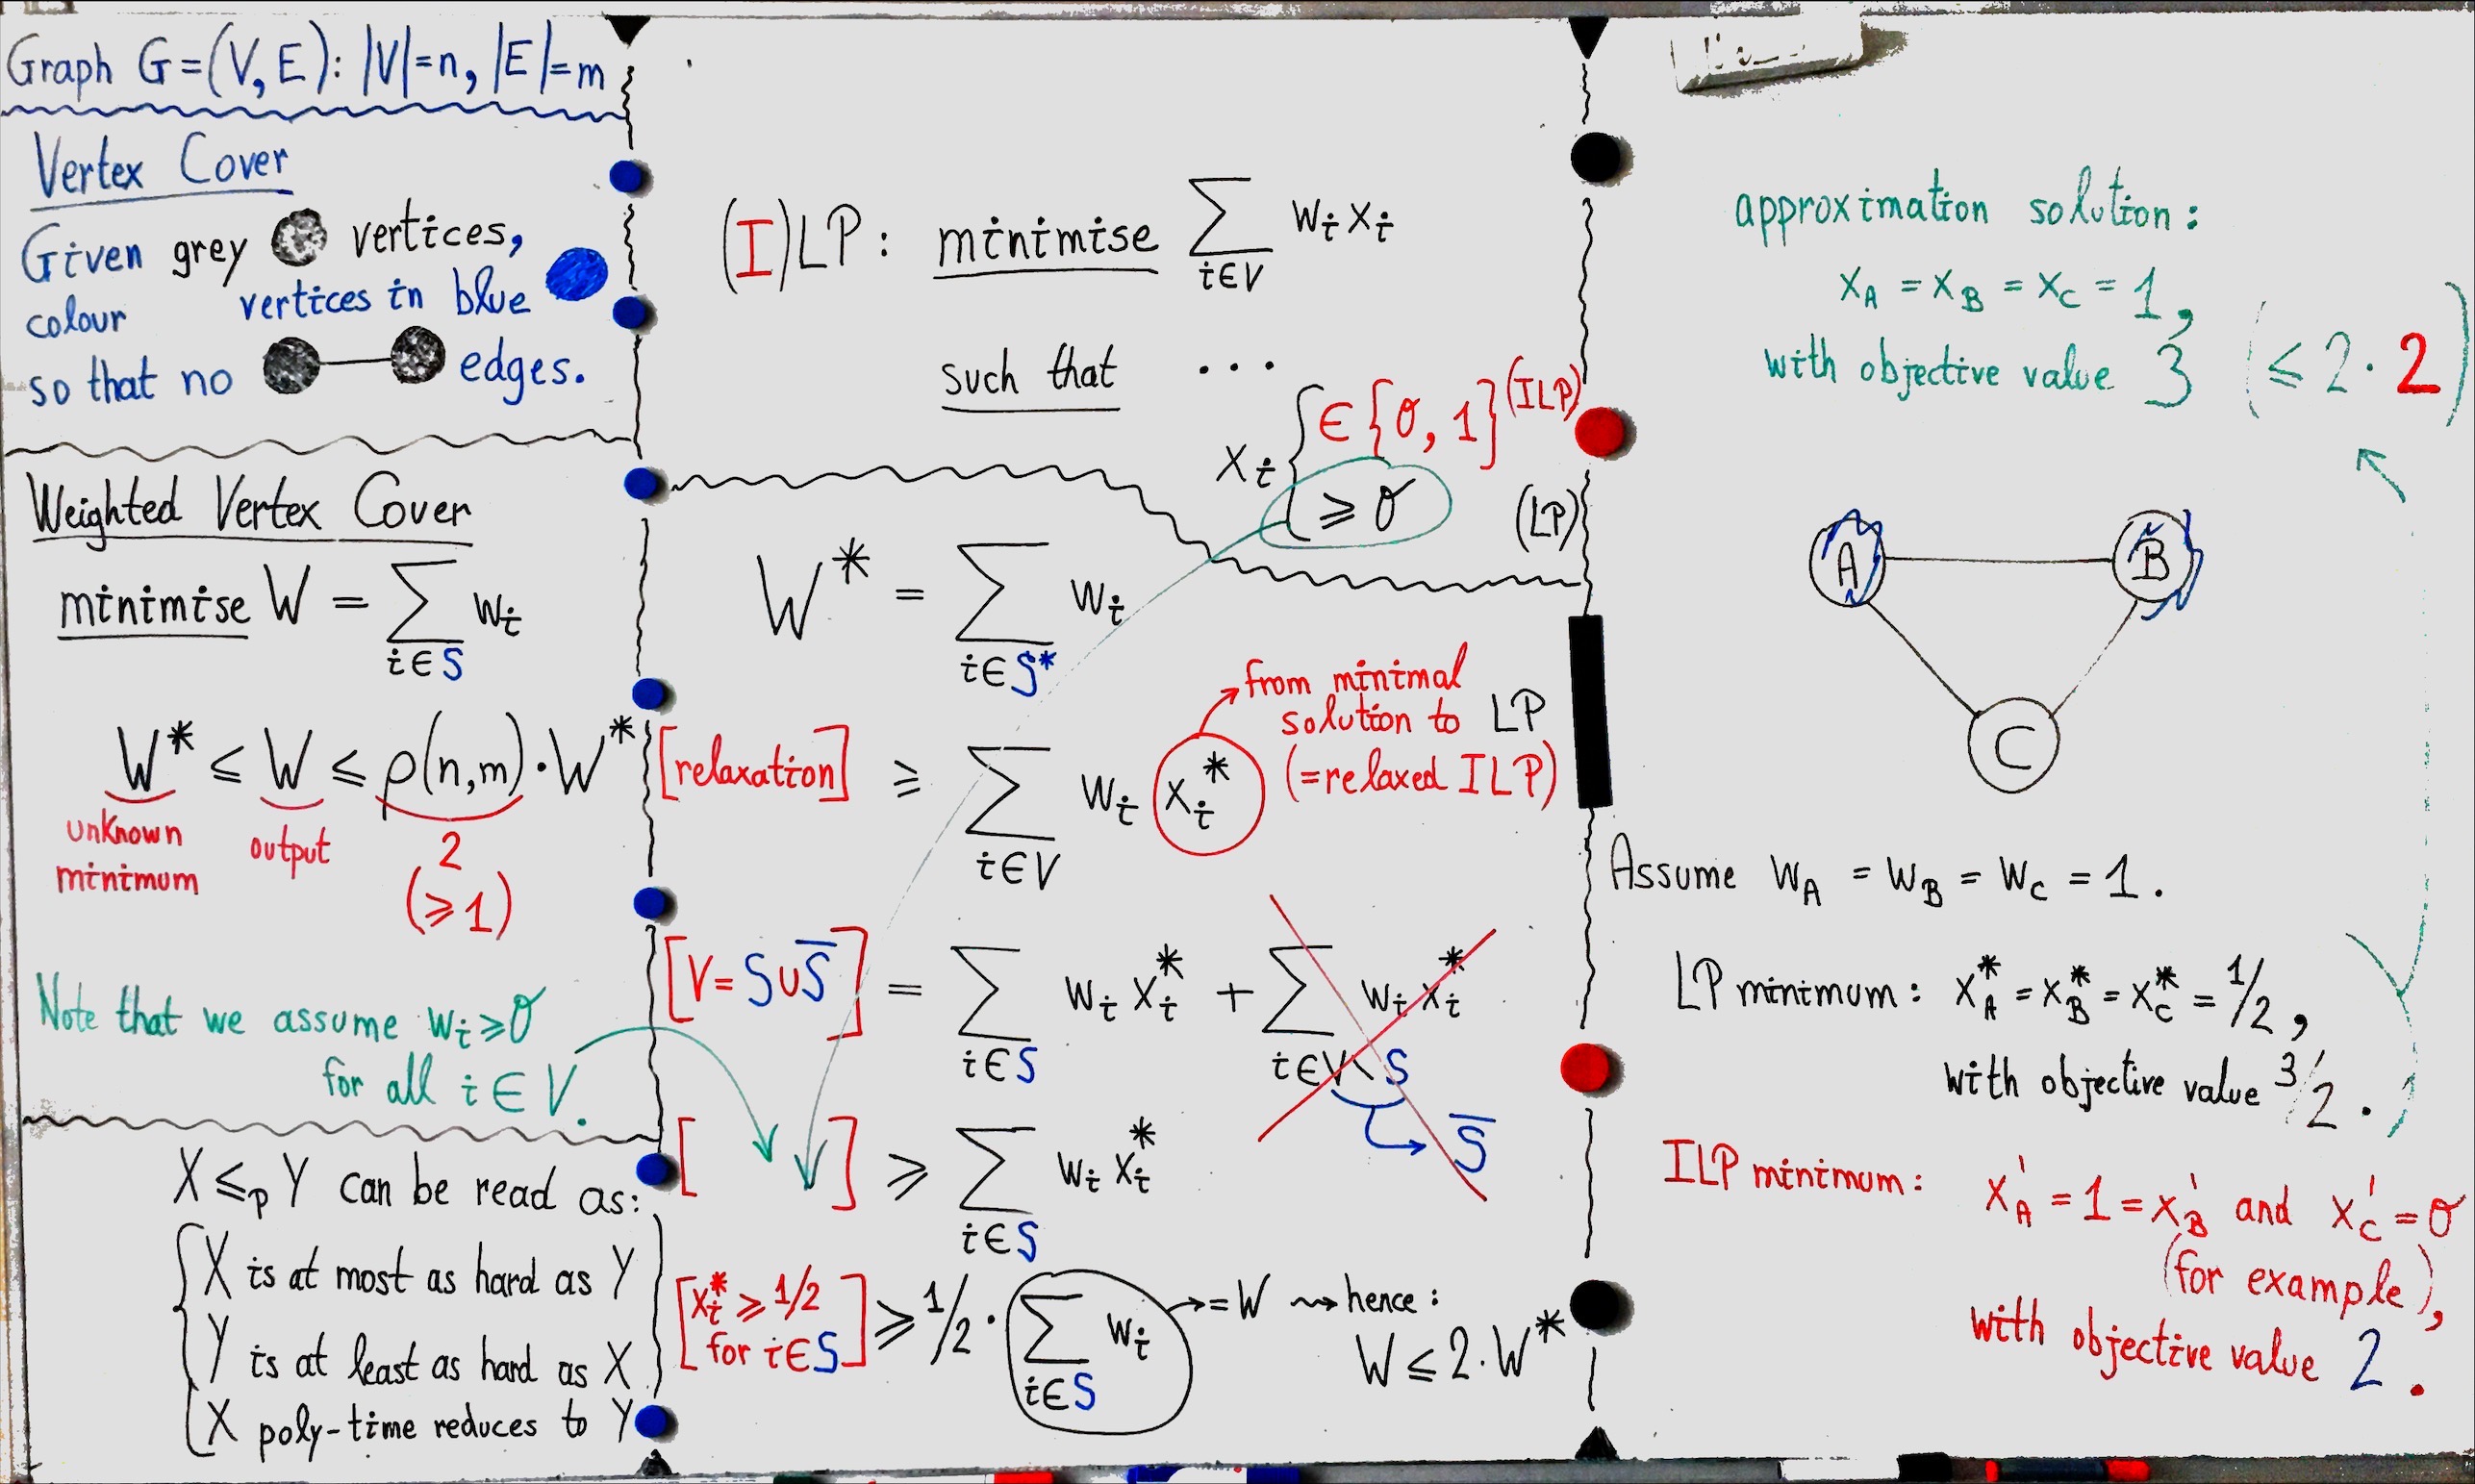 Graph G=(V,E): |V|=n, |E|=m
Vertex Cover
Given grey vertices,
colour vertices in blue
so that no edges.
Weighted Vertex Cover
minimise W = ∑ wᵢ
i∈S
W* ≤ W ≤ ρ(n,m)·W*
unknown minimum
output
2
(≥1)
Note that we assume wᵢ≥0
for all i∈V.
X ≤ₚ Y can be read as:
X is at most as hard as Y
Y is at least as hard as X
X poly-time reduces to Y
(I)LP: minimise ∑ wᵢxᵢ
i∈V
such that ...
xᵢ { ∈{0,1} (ILP)
≥0 (LP)
W* = ∑ wᵢ
i∈S*
[relaxation] ≥ ∑ wᵢ xᵢ*
i∈V
from minimal
solution to LP
(=relaxed ILP)
[V=S∪S̅] = ∑ wᵢ xᵢ* + ∑ wᵢ xᵢ*
i∈S i∈V\S
S̅
[ ] ≥ ∑ wᵢ xᵢ*
i∈S
[xᵢ* ≥ 1/2
for i∈S] ≥ 1/2 · ∑ wᵢ → =W ⇝ hence:
i∈S W ≤ 2·W*
approximation solution:
x_A = x_B = x_C = 1,
with objective value 3 (≤ 2·2)
A
B
C
Assume w_A = w_B = w_C = 1.
LP minimum: x_A* = x_B* = x_C* = 1/2,
with objective value 3/2.
ILP minimum: x_A' = 1 = x_B' and x_C' = 0
(for example),
with objective value 2.